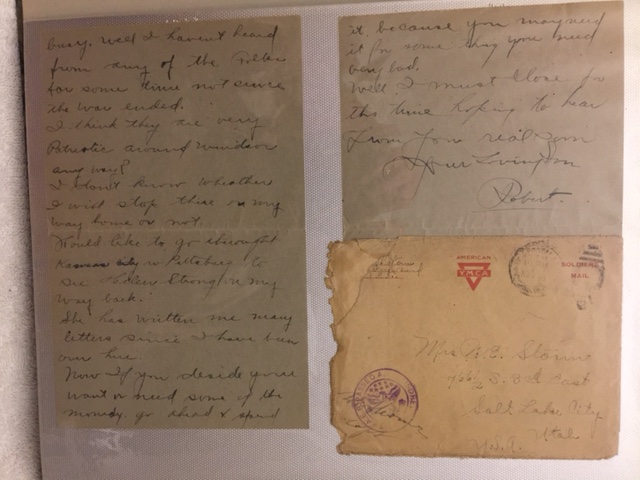 busy. Well I haven't heard
from any of the Folks
for some time not since
the war ended.
I think they are very
Patriotic around Windsor
any way?
I don't know wheather
I will stop there on my
way home or not.
Would like to go through
Kansas city to Pittsburg to
see Helen Strong on my
way back.
She has written me many
letters since I have been
over here.
Now If you deside you
want or need some of the
money. go ahead & spend
it. because you may need
it for some day you need
very bad.
Well I must Close for
this time hoping to hear
from you real soon
Your Loving Son
Robert.
AMERICAN
YMCA
SOLDIERS
MAIL
Mrs
Storm
East
Salt Lake City
Utah
U.S.A.